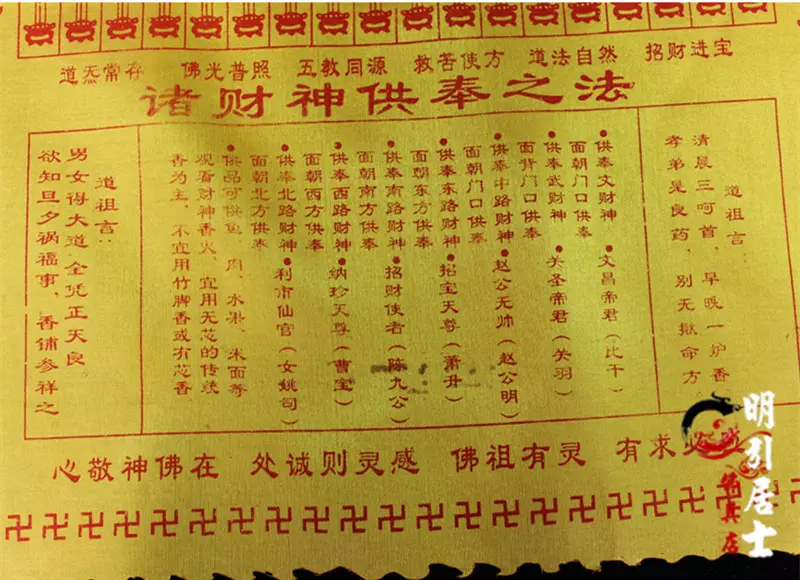 道炁常存 佛光普照 五教同源 救苦使方 道法自然 招财进宝
诸财神供奉之法
道祖言：
清晨三呵首，早晚一炉香
孝弟是良药，别无揪命方
●供奉文财神●文昌帝君（比干）
面朝门口供奉
●供奉武财神●关圣帝君（关羽）
面背门口供奉
●供奉中路财神●赵公无帅（赵公明）
面朝门口供奉
●供奉东路财神●招宝天尊（萧升）
面朝东方供奉
●供奉南路财神●招财使者（陈九公）
面朝南方供奉
●供奉西路财神●纳珍天尊（曹宝）
面朝西方供奉
●供奉北路财神●利市仙官（女姚司）
面朝北方供奉
●供品可供鱼、肉、水果、米面等
观看财神香火，宜用无芯的传统
香为主，不宜用竹脚香或有芯香
道祖言：
男女得大道 全凭正天良
欲知旦夕祸福事，香铺参祥之
心敬神佛在 处诚则灵感 佛祖有灵 有求必
明引居士